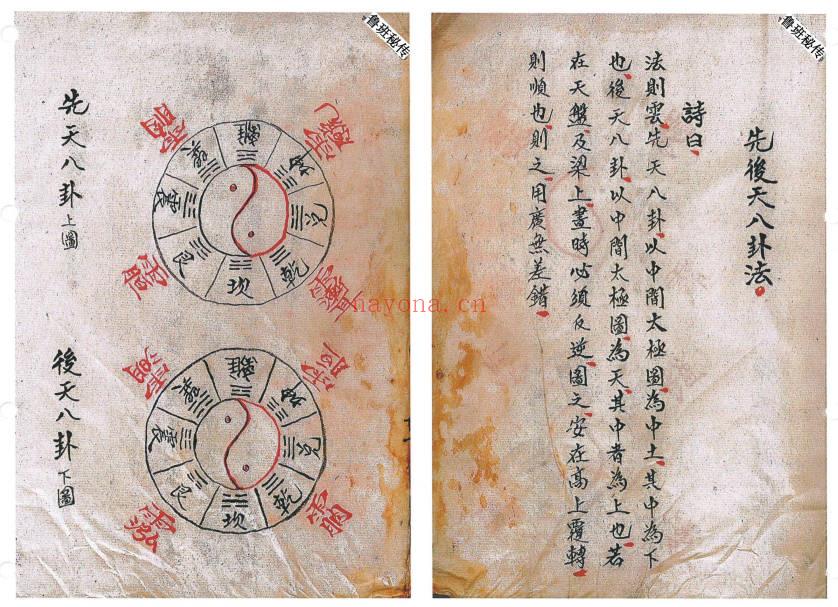 鲁班秘传
先後天八卦法
詩曰
法則雲先天八卦以中間太極圖為中土其中為下
也後天八卦以中間太極圖為天其中者為上也若
在天盤及梁上畫時必須反逆圖之安在高上覆轉
則順也則之用廣無差錯
鲁班秘传
先天八卦上圖
離
兌
乾
坎
艮
震
巽
後天八卦下圖
離
兌
乾
坎
艮
震
巽
nayona.cn